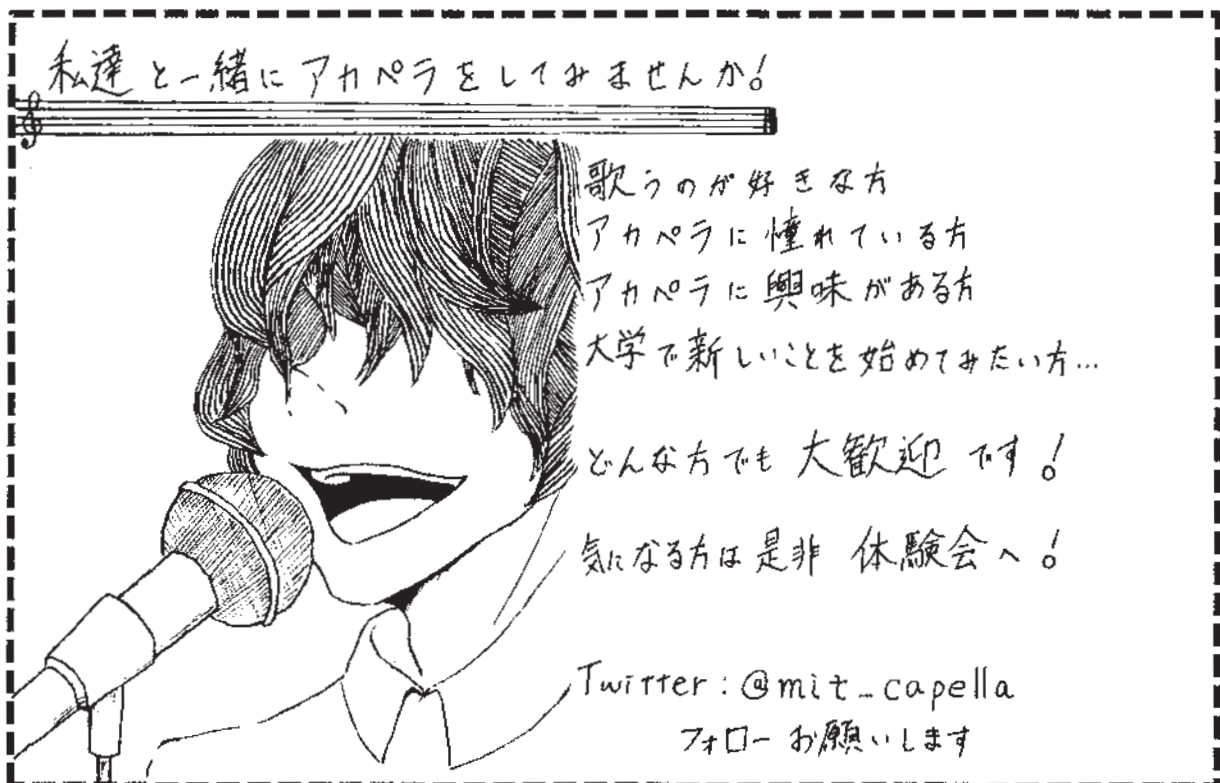 私達と一緒にアカペラをしてみませんか!
歌うのが好きな方
アカペラに憧れている方
アカペラに興味がある方
大学で新しいことを始めてみたい方…
どんな方でも大歓迎です!
気になる方は是非 体験会へ!
Twitter:@mit_capella
フォローお願いします